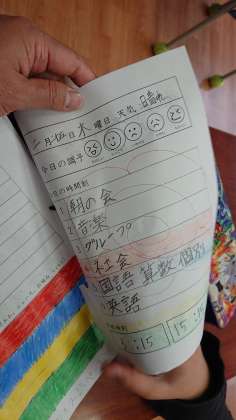 二月 日 木 曜日 天気 晴れ
今日の調子
の時間割
1 朝の会
2 音楽
3 グループ
4 社会
5 国語 算数 個別
6 英語
:15 15:15